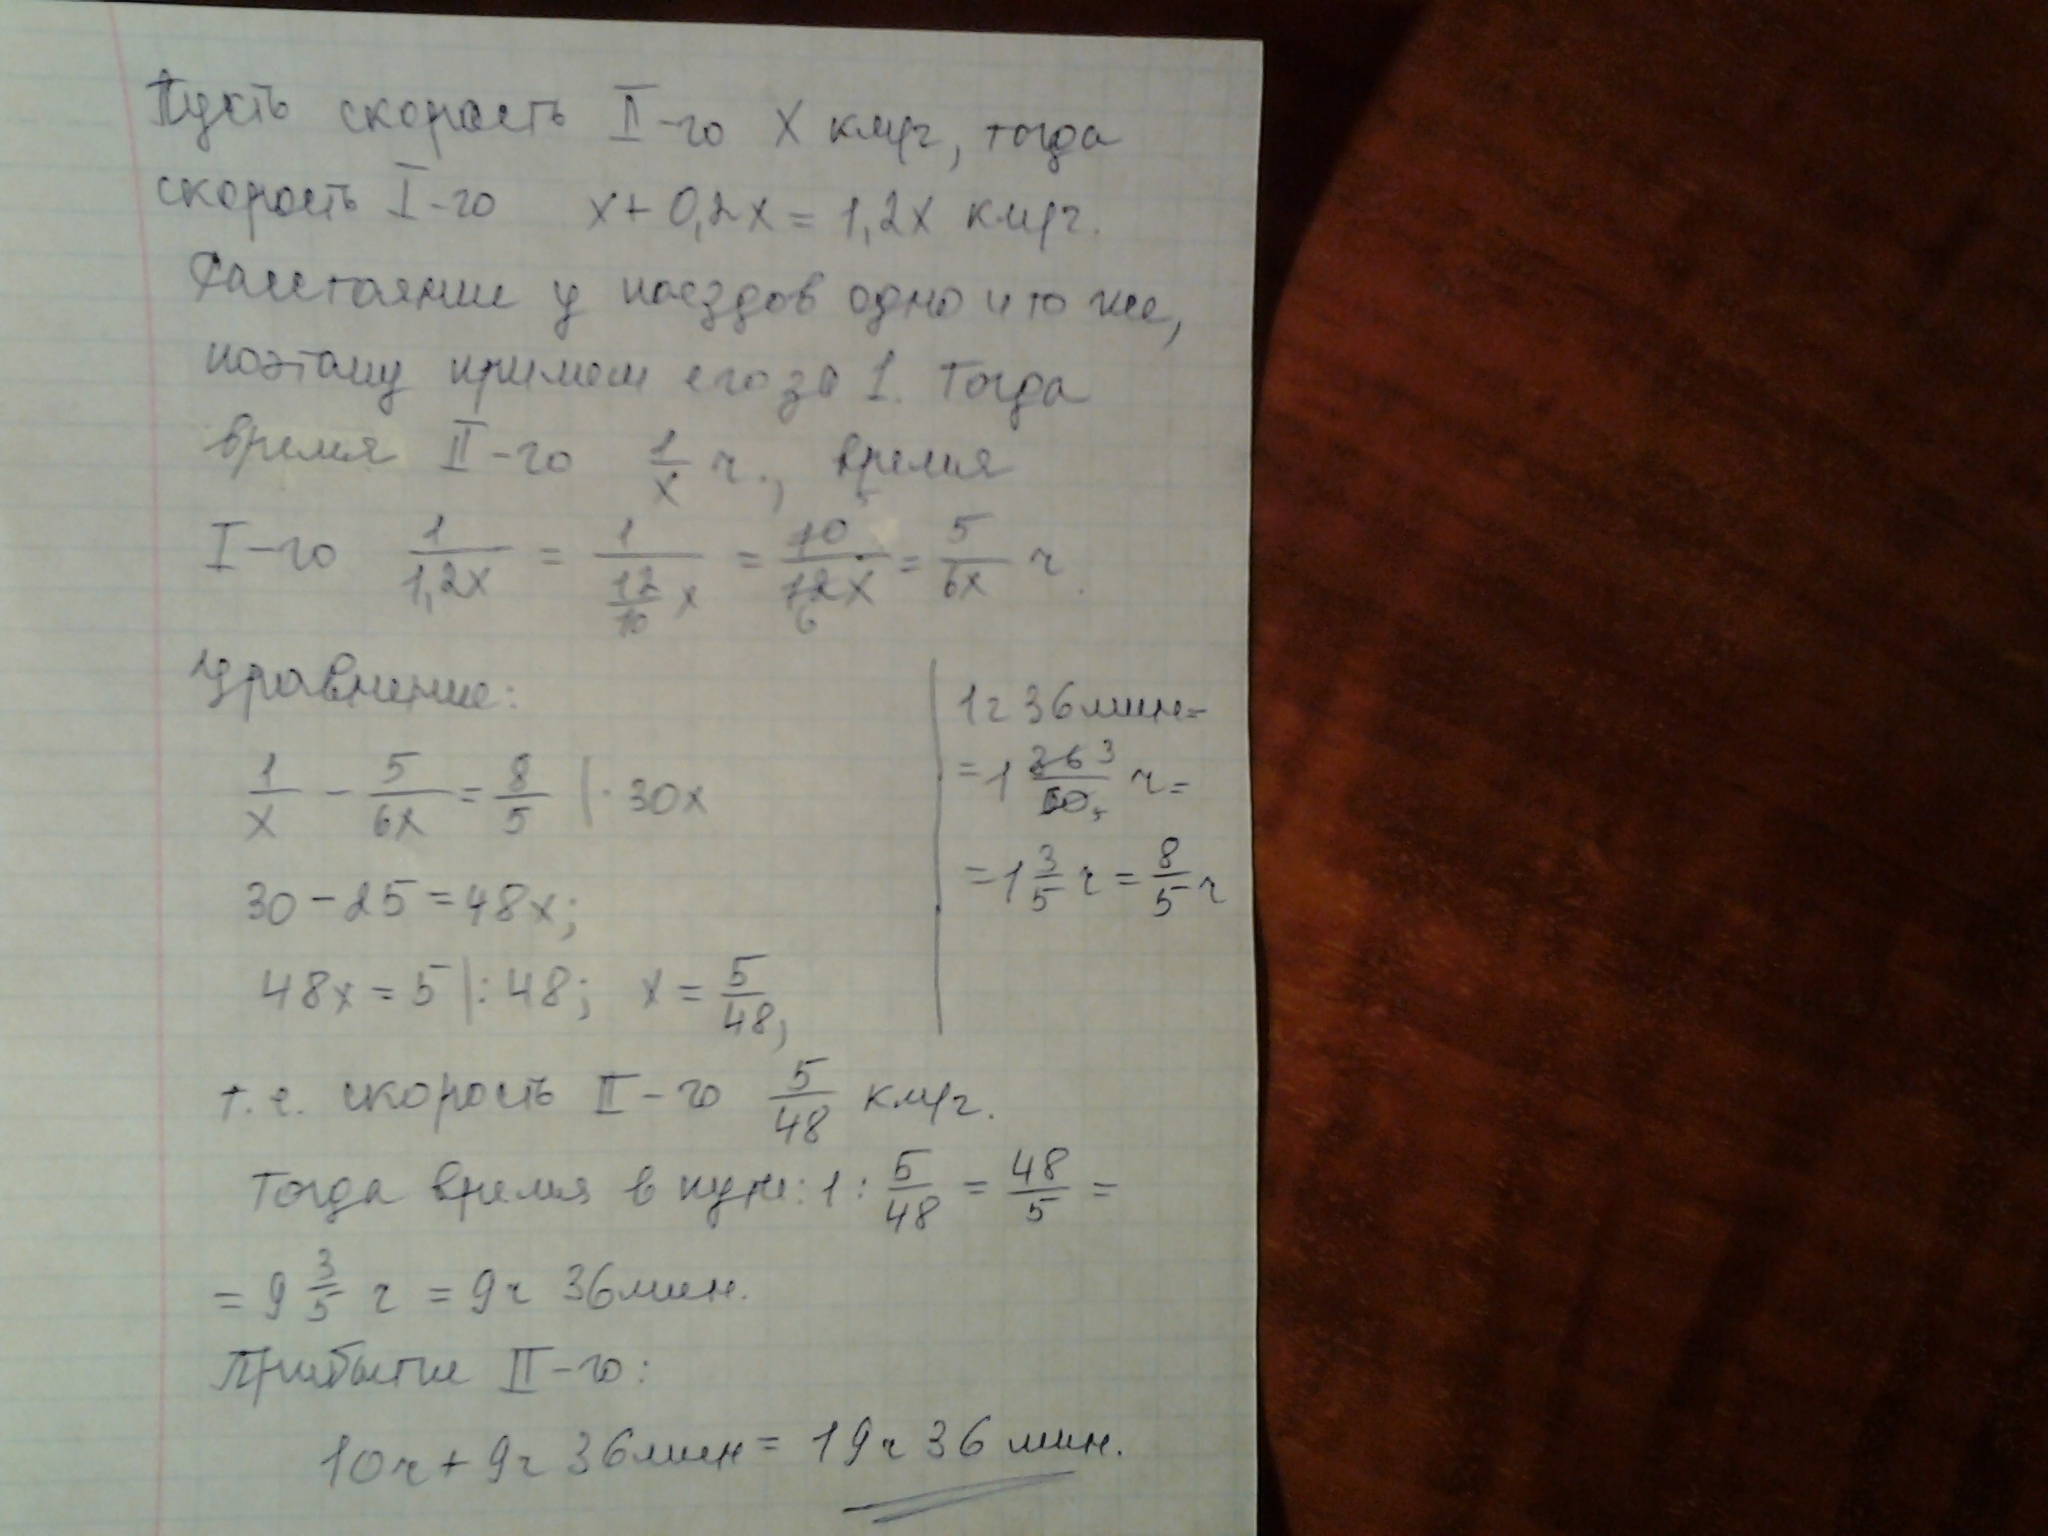 Пусть скорость II-го x км/ч, тогда
скорость I-го x + 0,2x = 1,2x км/ч.
Расстояние у поездов одно и то же,
поэтому примем его за 1. Тогда
время II-го 1/x ч., время
I-го 1/1,2x = 1/(12/10 x) = 10/12x = 5/6x ч.
5
6
Уравнение:
1/x - 5/6x = 8/5 | · 30x
30 - 25 = 48x;
48x = 5 | : 48; x = 5/48,
1ч 36мин=
= 1 36/60 ч =
3
5
= 1 3/5 ч = 8/5 ч
т.е. скорость II-го 5/48 км/ч.
Тогда время в пути: 1 : 5/48 = 48/5 =
= 9 3/5 ч = 9ч 36мин.
Прибытие II-го:
10ч + 9ч 36мин = 19ч 36 мин.